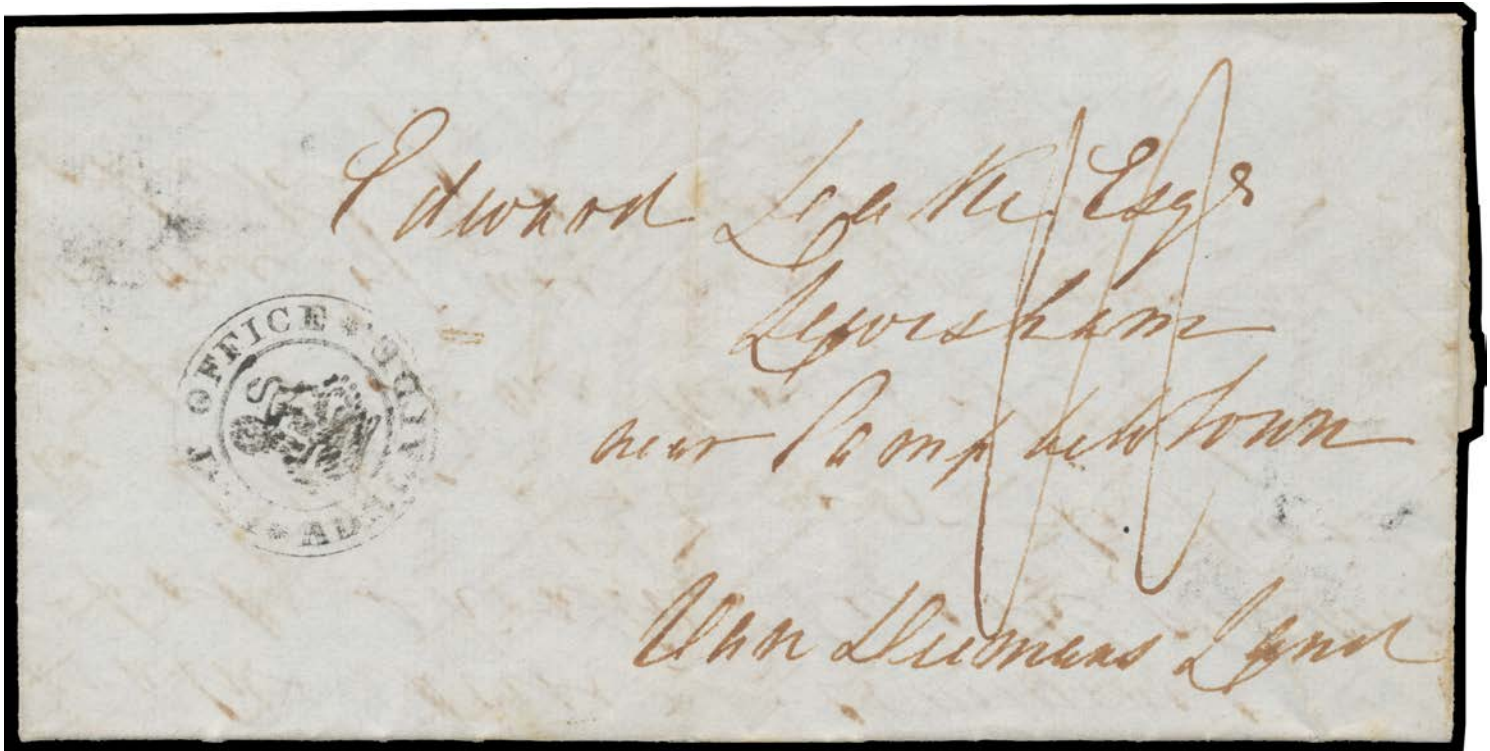 Edward Leake Esqr
Lewisham
near Campbeltown
Van Diemens Land
OFFICE